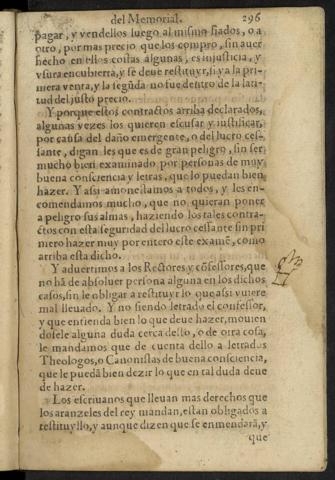 del Memorial. 296
pagar, y vendellos luego al mismo fiados, o a
otro, por mas precio que los compro, sin auer
hecho en ellos costas algunas, es injusticia, y
vsura encubierta, y se deue restituyr, si ya la pri
mera venta, y la segũda no fue dentro de la lati-
tud del justo precio.
Y porque estos contractos arriba declarados,
algunas vezes los quieren escusar y justificar,
por causa del daño emergente, o del lucro ces-
sante, digan les que es de gran peligro, sin ser
mucho bien examinado por personas de muy
buena consciencia y letras, que lo puedan bien
hazer. Y assi amonestamos a todos, y les en-
comendamos mucho, que no quieran poner
a peligro sus almas, haziendo los tales contra-
ctos con esta seguridad del lucro cessante sin pri
mero hazer muy por entero este examẽ, como
arriba esta dicho.
Y aduertimos a los Rectores y cõfessores, que
no hã de absoluer persona alguna en los dichos
casos, sin le obligar a restituyr lo que assi vuiere
mal lleuado. Y no siendo letrado el confessor,
y que entienda bien lo que deue hazer, mouien
dosele alguna duda cerca dello, o de otra cosa,
le mandamos que de cuenta dello a letrados
Theologos, o Canonistas de buena consciencia,
que le puedã bien dezir lo que en tal duda deue
de hazer.
Los escriuanos que lleuan mas derechos que
los aranzeles del rey mandan, estan obligados a
restituyllo, y aunque dizen que se enmendarã, y
que